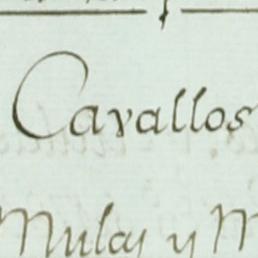 Cavallos
Mulas y M